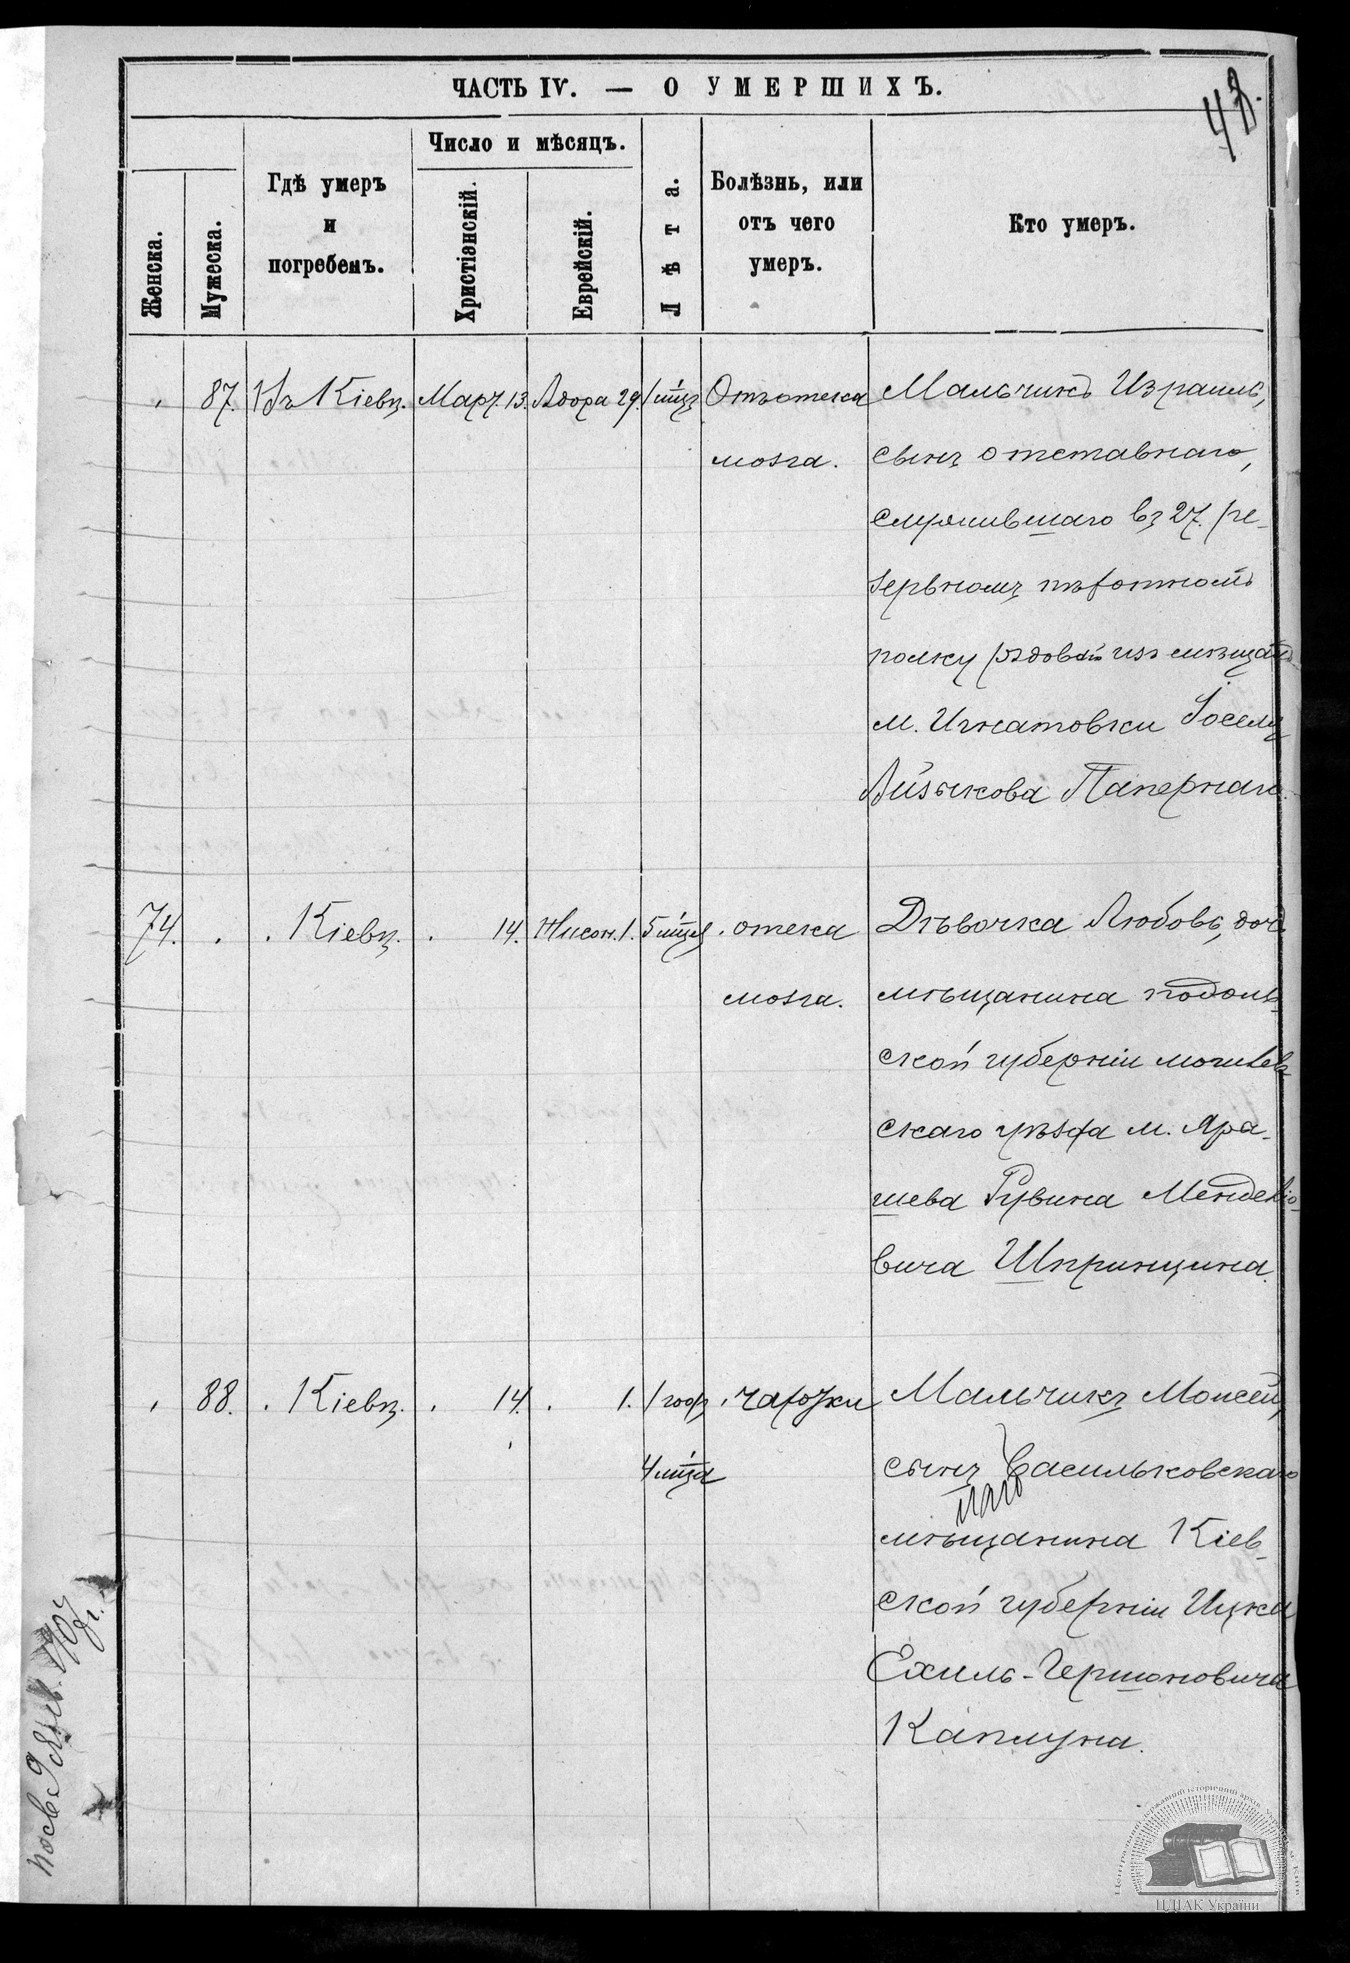 ЧАСТЬ IV. — О УМЕРШИХЪ.
48.
Женска.
Мужеска.
Гдѣ умеръ
и
погребенъ.
Число и мѣсяцъ.
Христіанскій.
Еврейскій.
Лѣта.
Болѣзнь, или
отъ чего
умеръ.
Кто умеръ.
87. Въ Кіевѣ. Март. 13. Адора 29. 1 мѣц. Отъ отека Мальчикъ Израиль,
мозга. сынъ отставнаго,
служившаго въ 27. ре-
зервномъ пѣхотномъ
полку рядов. изъ мѣщанъ
м. Игнатовки Іосела
Айзикова Папернаго.
74. . . Кіевѣ. . 14. Нисон. 1. 5 мѣця . отека Дѣвочка Любовь, дочь
мозга. мѣщанина подоль-
ской губерніи могилев-
скаго уѣзда м. Яра-
шева Рувина Менделіо-
вича Шпринцина.
88. . Кіевѣ. . 14. . 1. 1 годъ Мальчикъ Моисей,
4 мѣца сынъ Васильковскаго
мѣщанина Кіев-
ской губерніи Ицка
Ехиль-Гершоновича
Каплуна.
ЦДІАК України